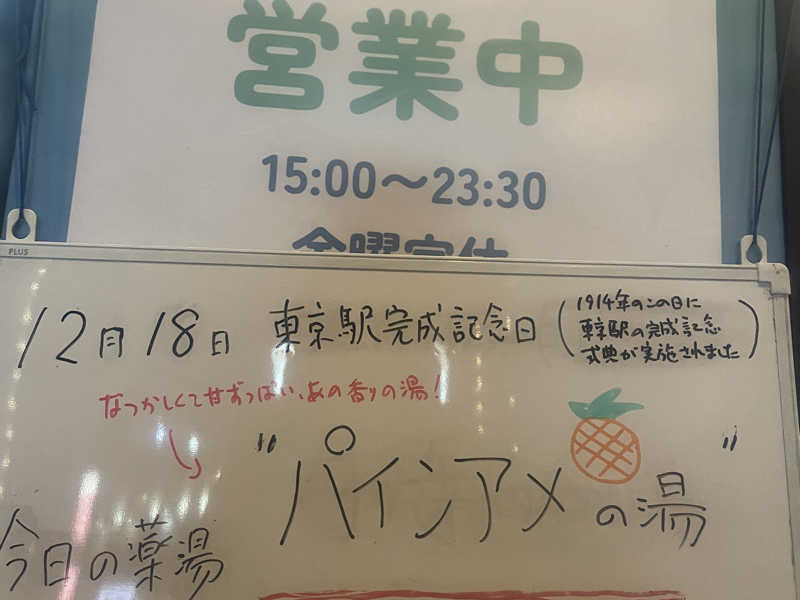 営業中
15:00～23:30
金曜定休
PLUS
12月18日 東京駅完成記念日
(1914年のこの日に
東京駅の完成記念
式典が実施されました)
なつかしくて甘ずっぱい、あの香りの湯!
"パインアメの湯"
今日の薬湯